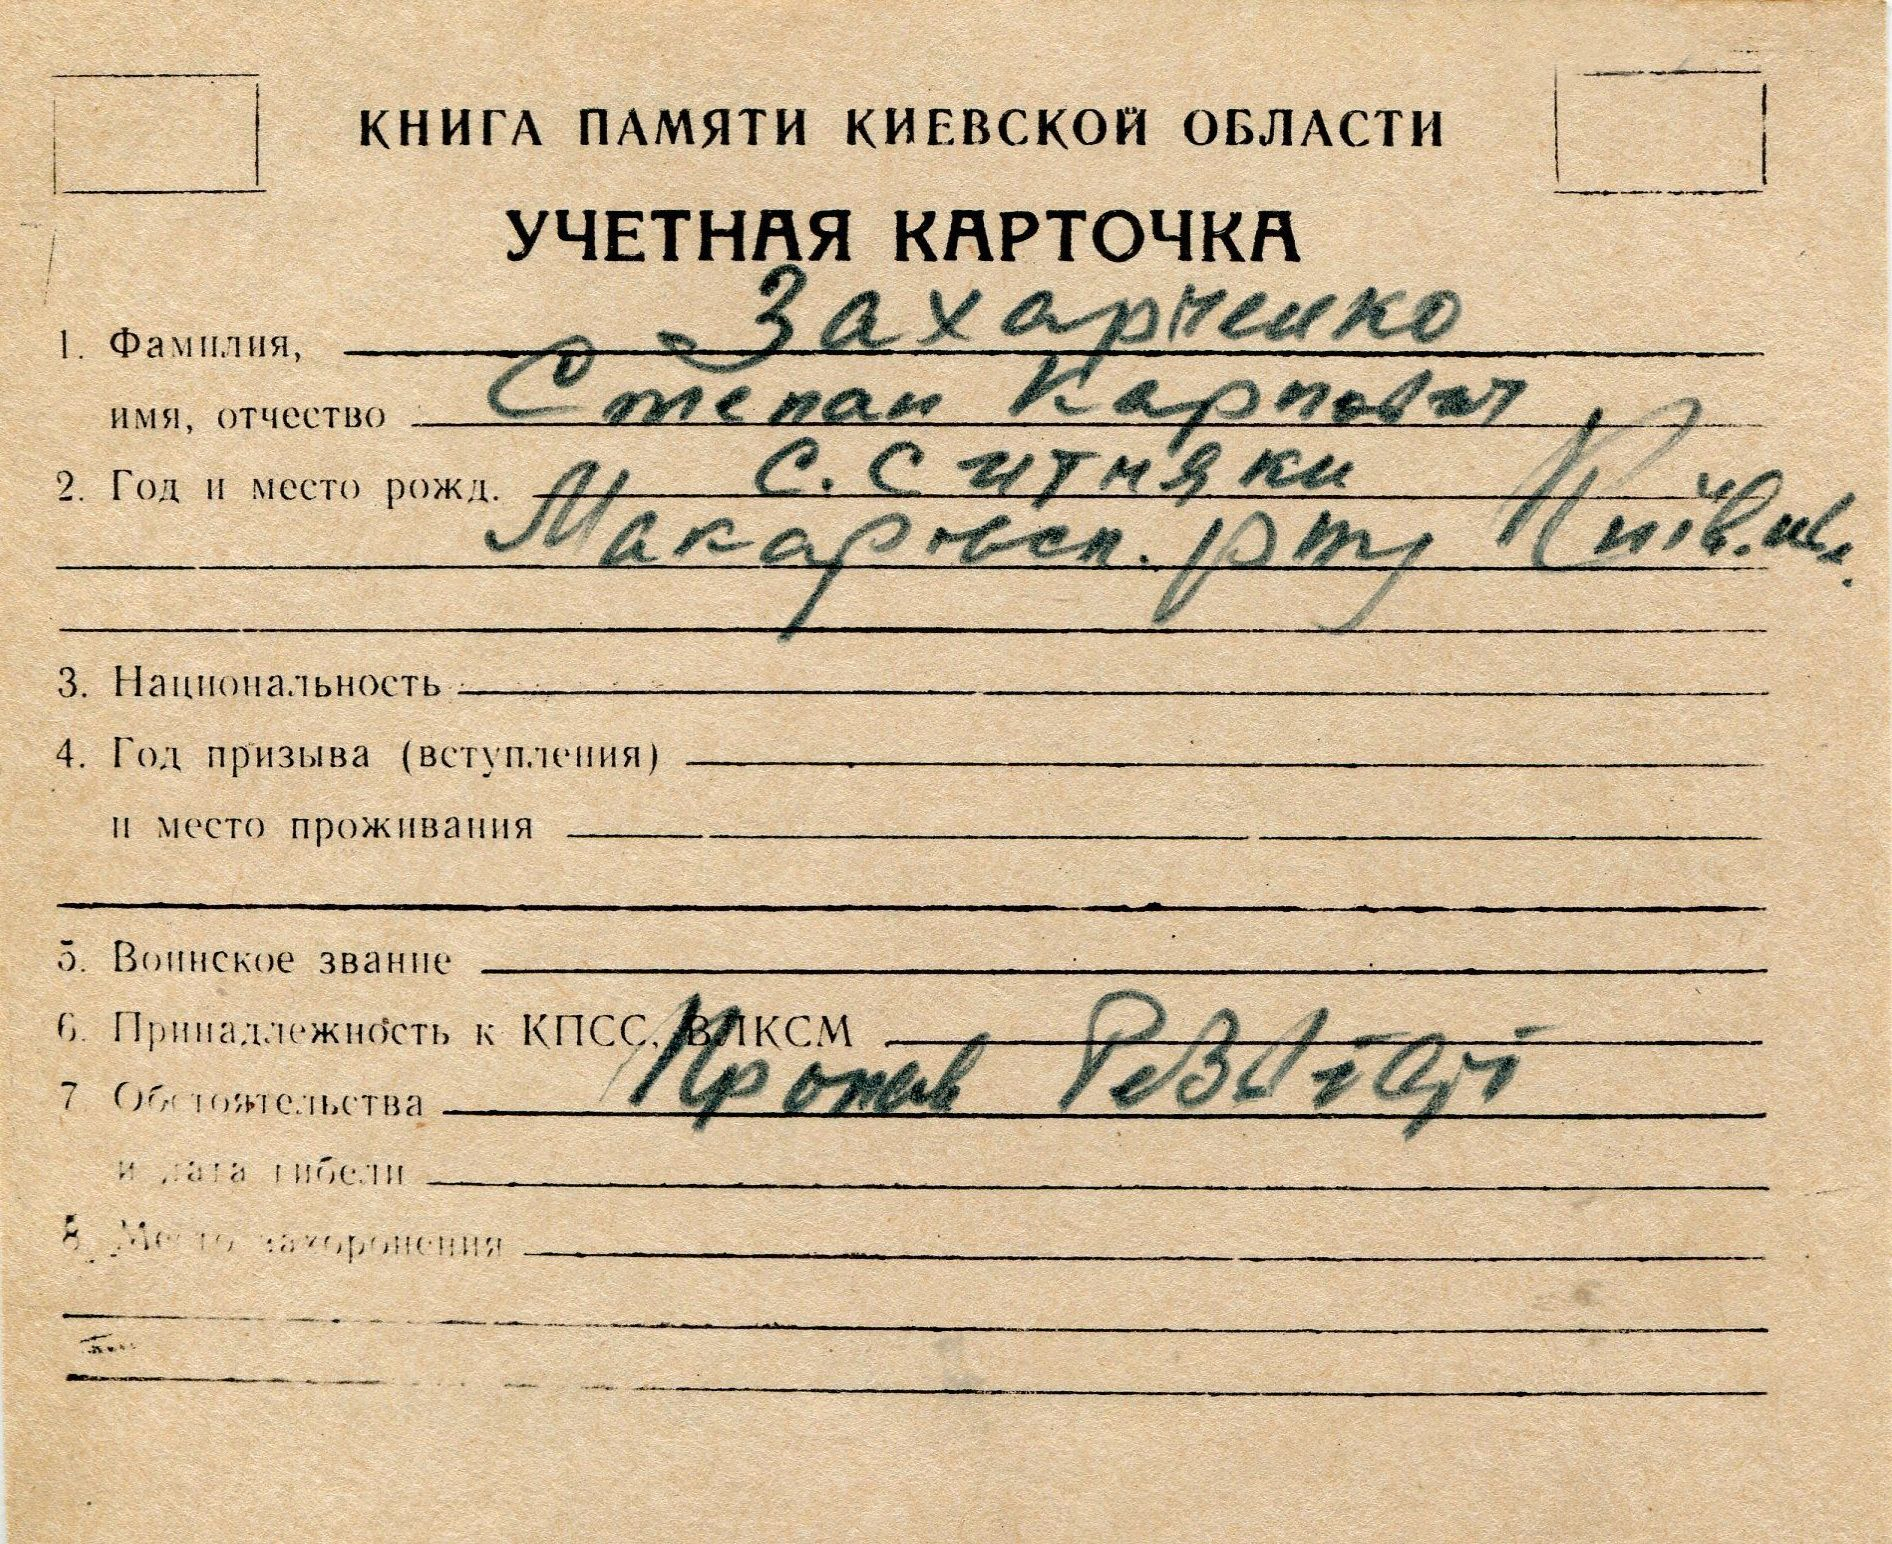 КНИГА ПАМЯТИ КИЕВСКОЙ ОБЛАСТИ
УЧЕТНАЯ КАРТОЧКА
1. Фамилия, Захарченко
имя, отчество Степан Карпович
2. Год и место рожд. с. Ситняки
Макаровск. р-ну Київ. обл.
3. Национальность
4. Год призыва (вступления)
и место проживания
5. Воинское звание
6. Принадлежность к КПСС, ВЛКСМ
7 Обстоятельства Пропав
и дата гибели
8. Место захоронения